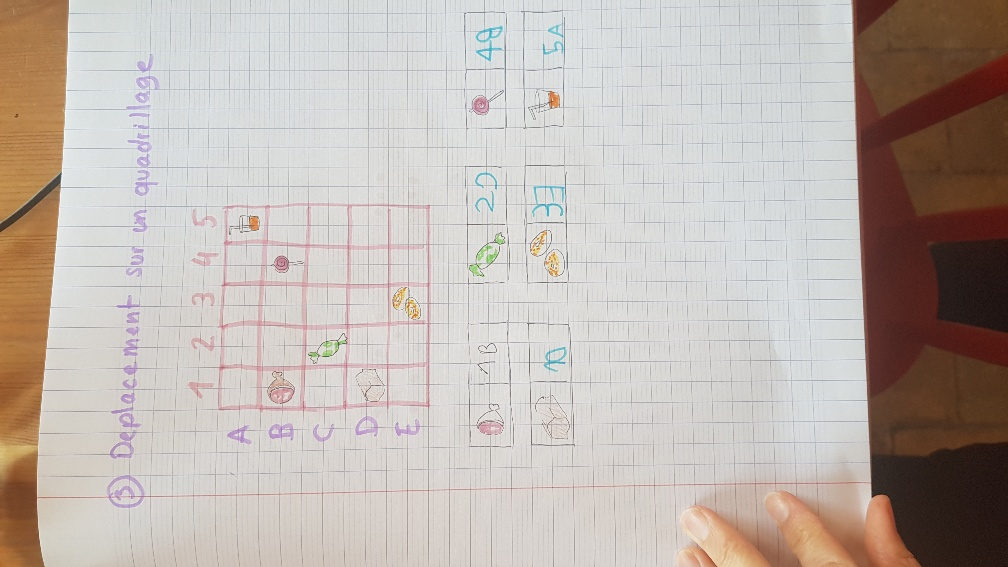 ③ Deplacement sur un quadrillage
1 2 3 4 5
A
B
C
D
E
1B 2C 4B
1D 3E 5A